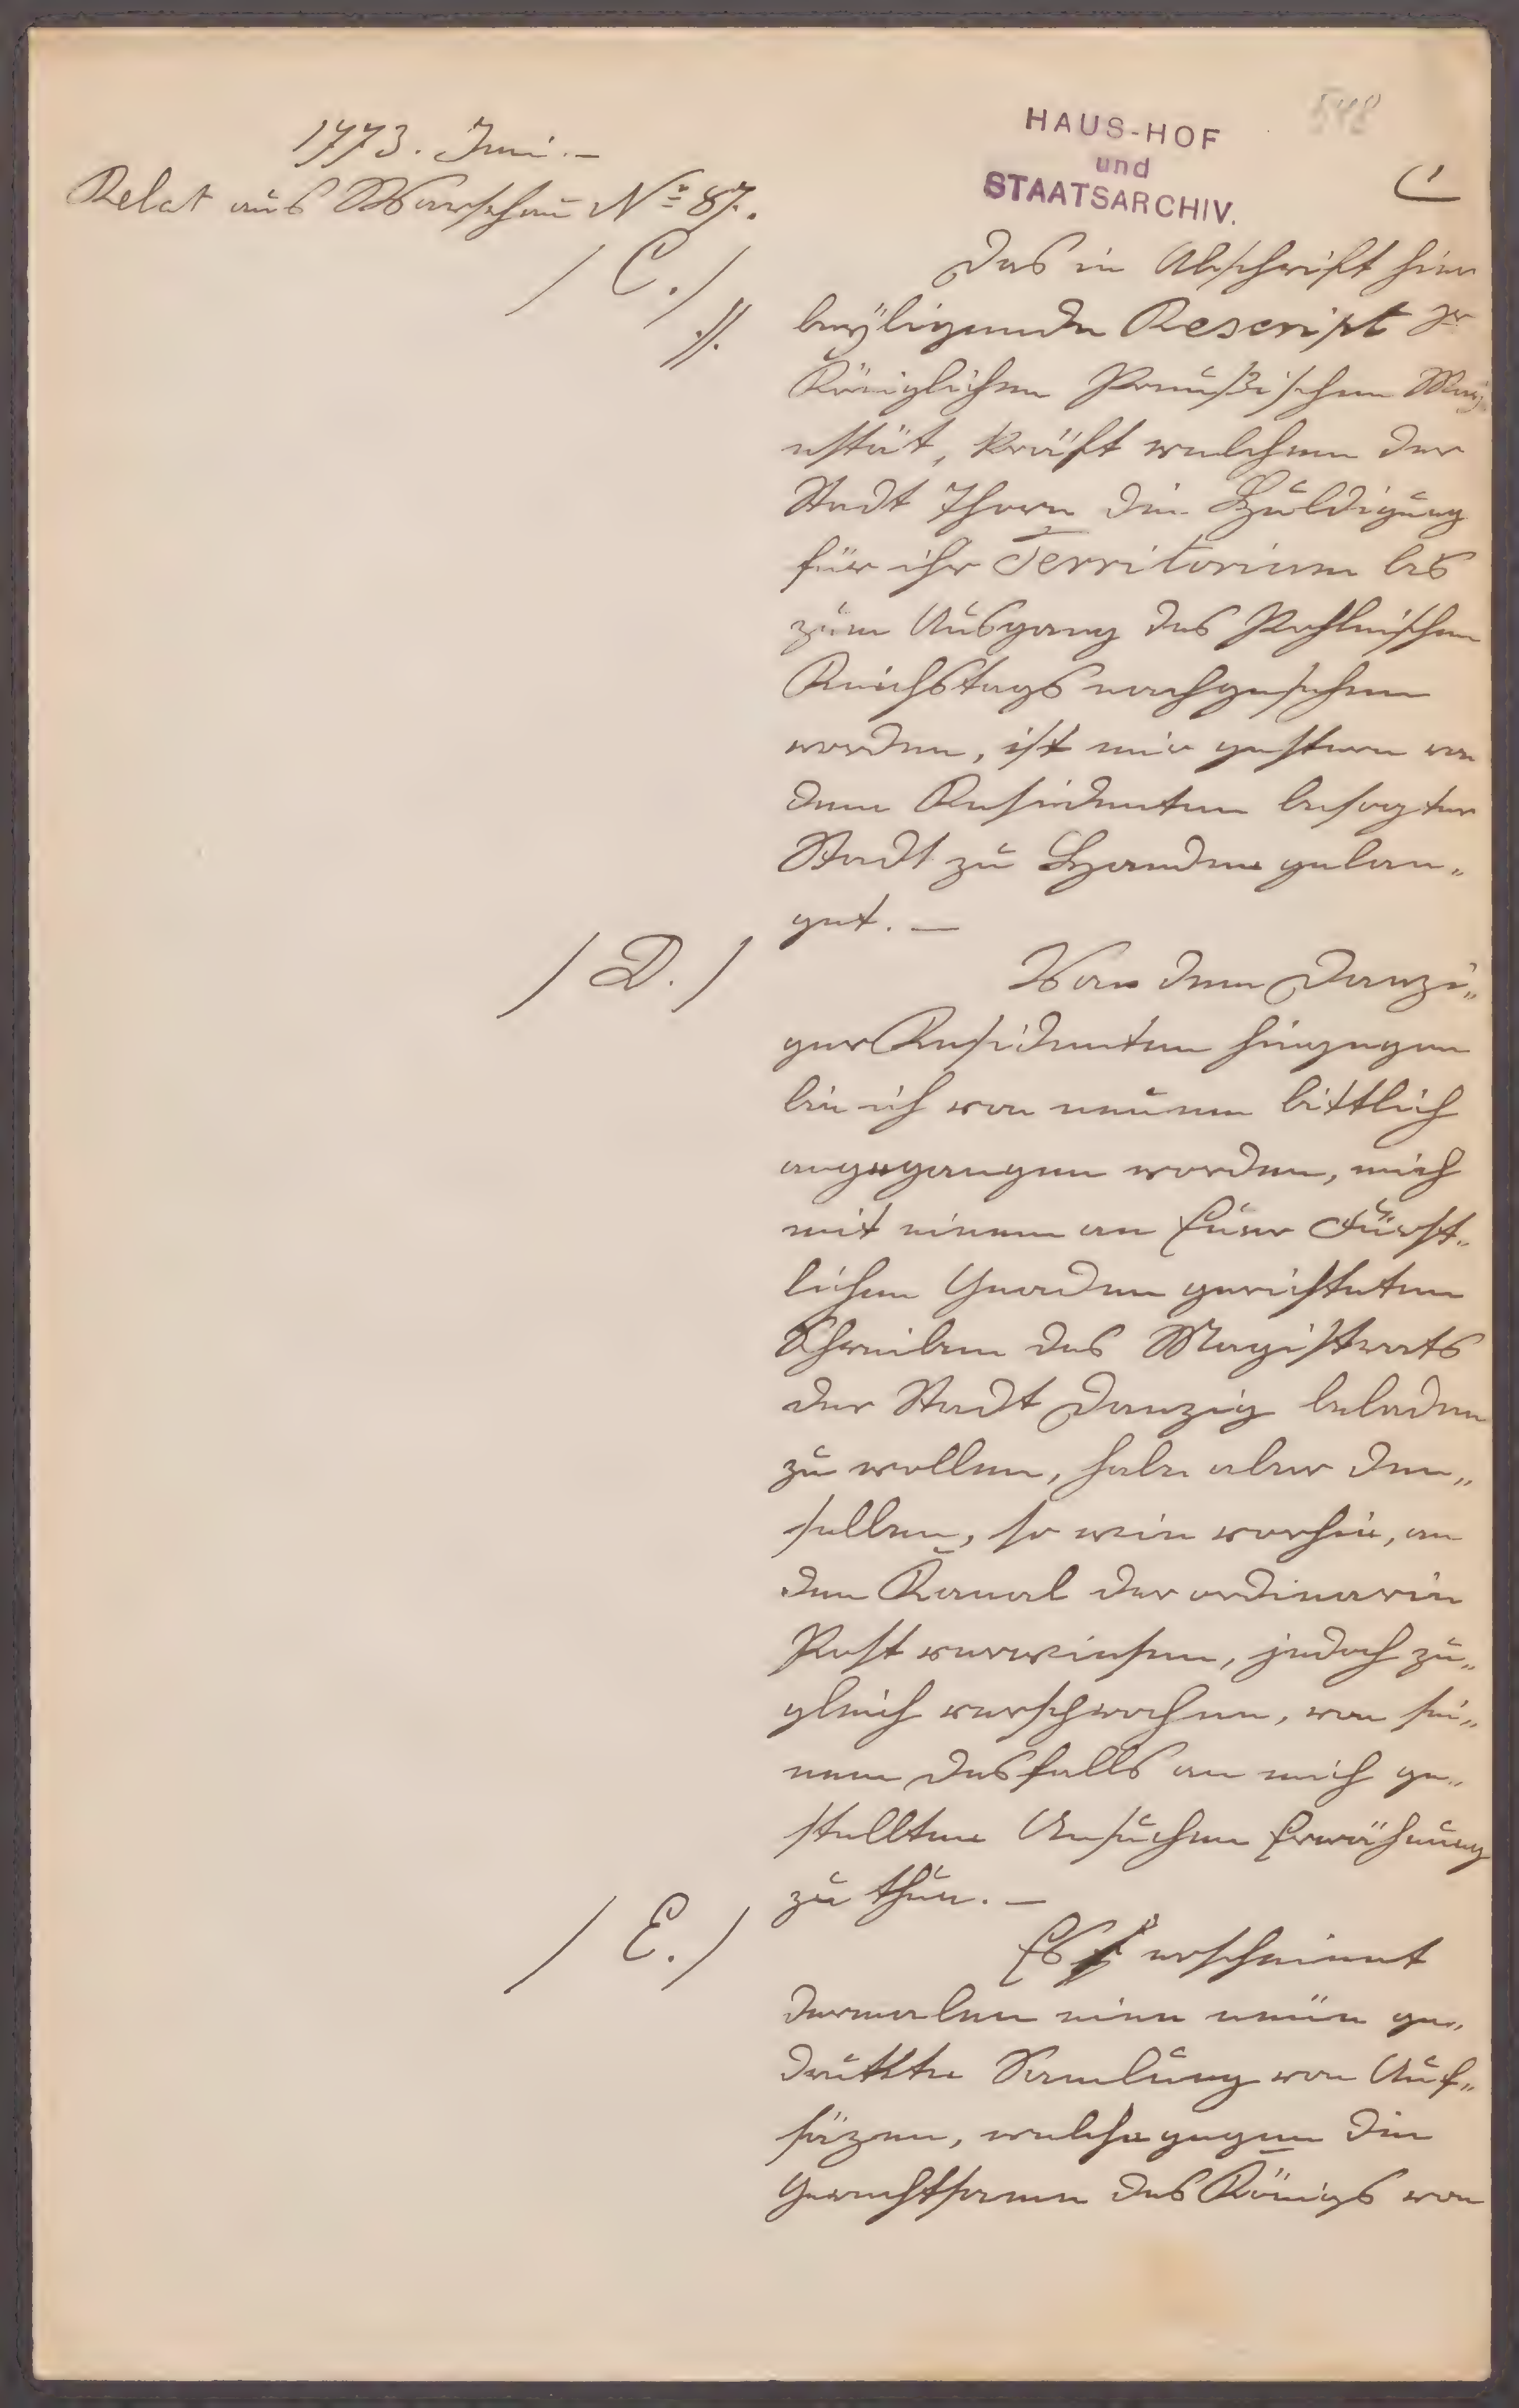 548
HAUS-HOF
und
STAATSARCHIV.
1773. Juni.—
Relat aus Warschau No 87.
/ C. /
Das in Abschrift hier
·//.
beÿligende Rescript Sr
Königlichen Preußischen Maj
estät, kräft welchem der
Stadt Thorn die Huldigung
für ihr Territorium bis
zum Ausgang des Pohlnischen
Reichstags nachgesehen
worden, ist mir gestern von
dem Residenten besagter
Stadt zu Handen gelan„
get. —
/ D. /
Von dem Danzi„
ger Residenten hingegen
bin ich von neuem bittlich
angegangen worden, mich
mit einem an Euer Fürst„
lichen Gnaden gerichteten
Schreiben des Magistrats
der Stadt Danzig beladen
zu wollen, habe aber den„
selben, so wie vorhin, an
den Kanal der ordinarie
Post verwiesen, jedoch zu„
gleich versprochen, von sei„
nem desfalls an mich ge„
stellten Ansuchen Erwähnung
zu thun. —
/ E. /
Es erscheinet
dermalen eine neüe ge„
drukte Samlung von Auf„
säzen, welche gegen die
Gerechtsame des Königs von